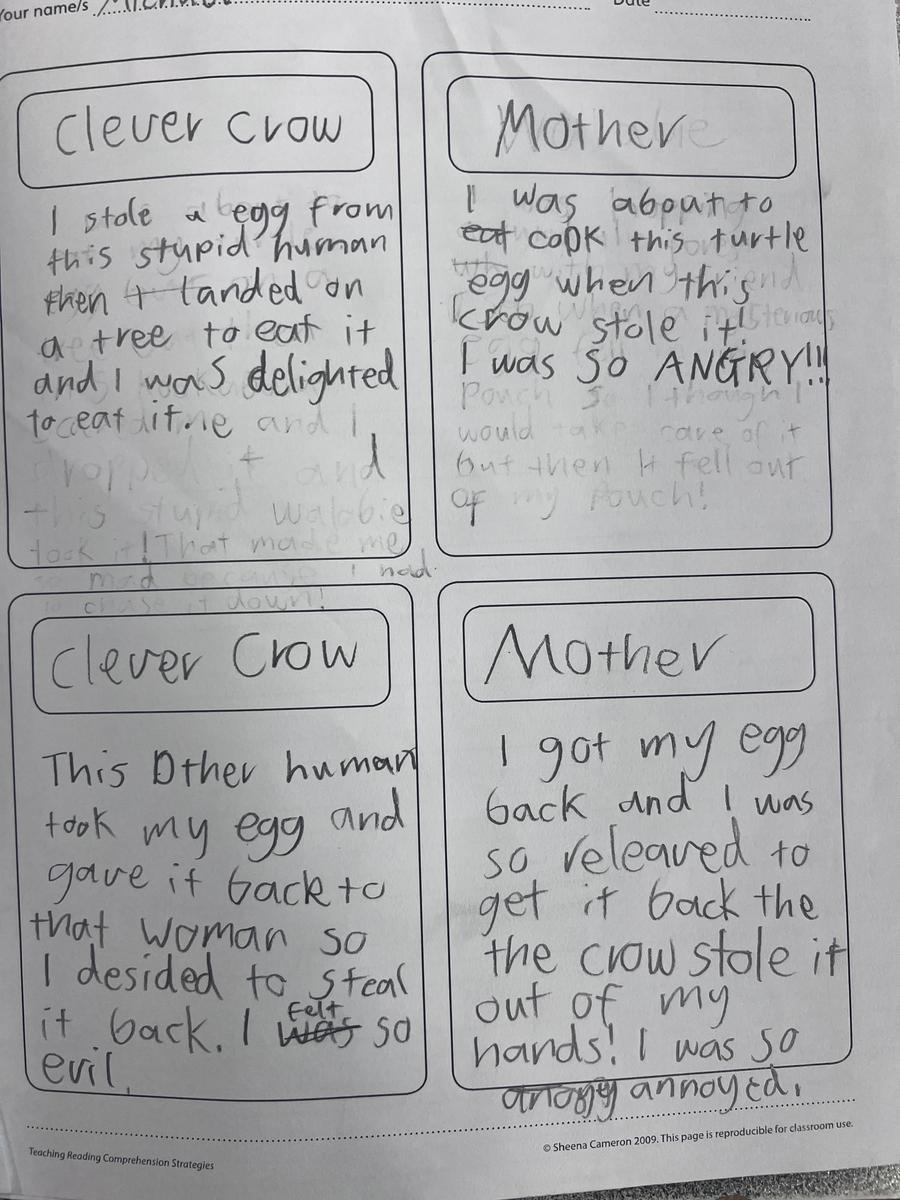 Your name/s
Date
Clever Crow
I stole a egg from
this stupid human
then I landed on
a tree to eat it
and I was delighted
to eat it.
dropped it and
this stupid walabie
took it! That made me
so mad because I had
to chase it down!
Mother
I was about to
eat cook this turtle
egg when this
crow stole it!
I was so ANGRY!!!
Pouch so I though I
would take care of it
but then It fell out
of my Pouch!
Clever Crow
This Other human
took my egg and
gave it back to
that woman so
I desided to steal
felt
it back. I was so
evil.
Mother
I got my egg
back and I was
so releaved to
get it back the
the crow stole it
out of my
hands! I was so
annoyed.
Teaching Reading Comprehension Strategies
© Sheena Cameron 2009. This page is reproducible for classroom use.